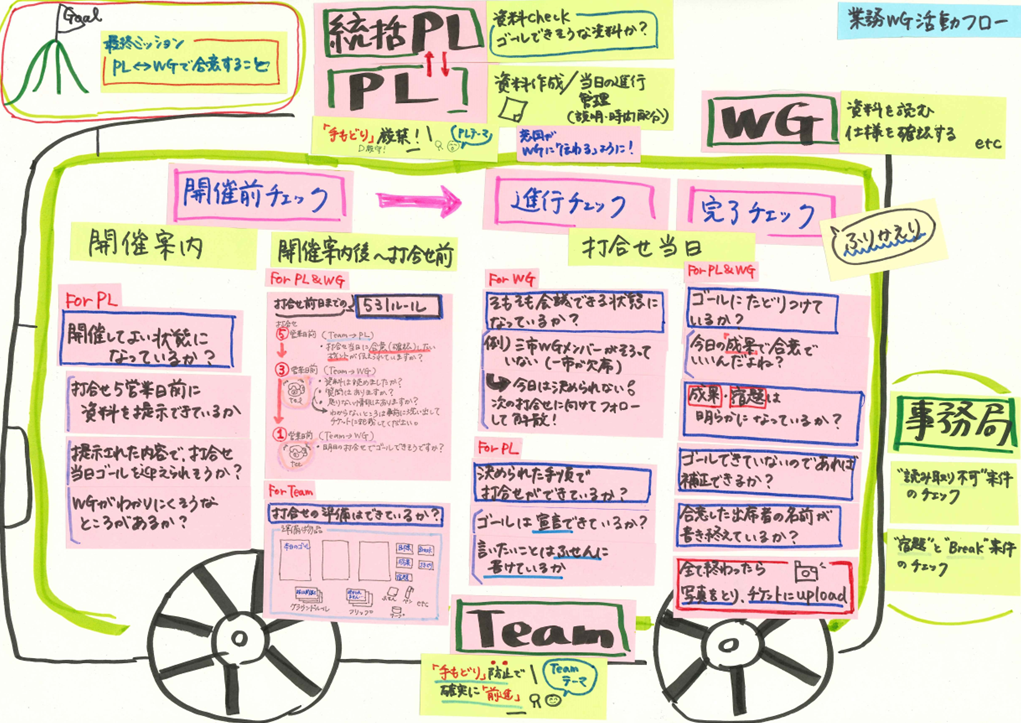 Goal
最終ミッション
PL↔WGで合意すること
統括PL
資料check
ゴールできそうな資料か?
業務WG活動フロー
PL
資料作成/当日の進行
管理
(説明・時間配分)
「手もどり」厳禁!
PLテーマ
意図が
WGに"伝わる"ように!
WG
資料を読む
仕様を確認する
etc
開催前チェック
進行チェック
完了チェック
ふりかえり
開催案内
開催案内後〜打合せ前
打合せ当日
For PL
開催してよい状態に
なっているか?
打合せ5営業日前に
資料を提示できているか
提示された内容で、打合せ
当日ゴールを迎えられそうか?
WGがわかりにくそうな
ところがあるか?
For PL&WG
打合せ前日までの
531ルール
打合せ
⑤営業日前 (Team→PL)
・打合せ当日に合意(確認)したい
③営業日前 (Team→WG)
・資料は読めましたか?
・質問はありますか?
・足りない情報はありますか?
わからないところは事前に洗い出して
チケットに起票してください。
①営業日前 (Team→WG)
・明日の打合せでゴールできそうですか?
For Team
打合せの準備はできているか?
準備物品
本日のゴール
Break
グラウンドルール
クリップ
ふせん
ペン
テープ
etc
For WG
そもそも会議できる状態に
なっているか?
例) 三市WGメンバーがそろって
いない (一市が欠席)
今日は決められない。
次の打合せに向けてフォロー
して解散!
For PL
決められた手順で
打合せができているか?
ゴールは宣言できているか?
言いたいことはふせんに
書けているか
For PL&WG
ゴールにたどりつけて
いるか?
今日の成果で合意で
いいんだよね?
成果・宿題は
明らかになっているか?
ゴールできていないのであれば
補正できるか?
合意した出席者の名前が
書き終えているか?
全て終わったら
写真をとり、チケットにupload
事務局
"読み取り不可"案件
のチェック
"宿題"と"Break"案件
のチェック
Team
「手もどり」防止で
確実に「前進」
Team
テーマ